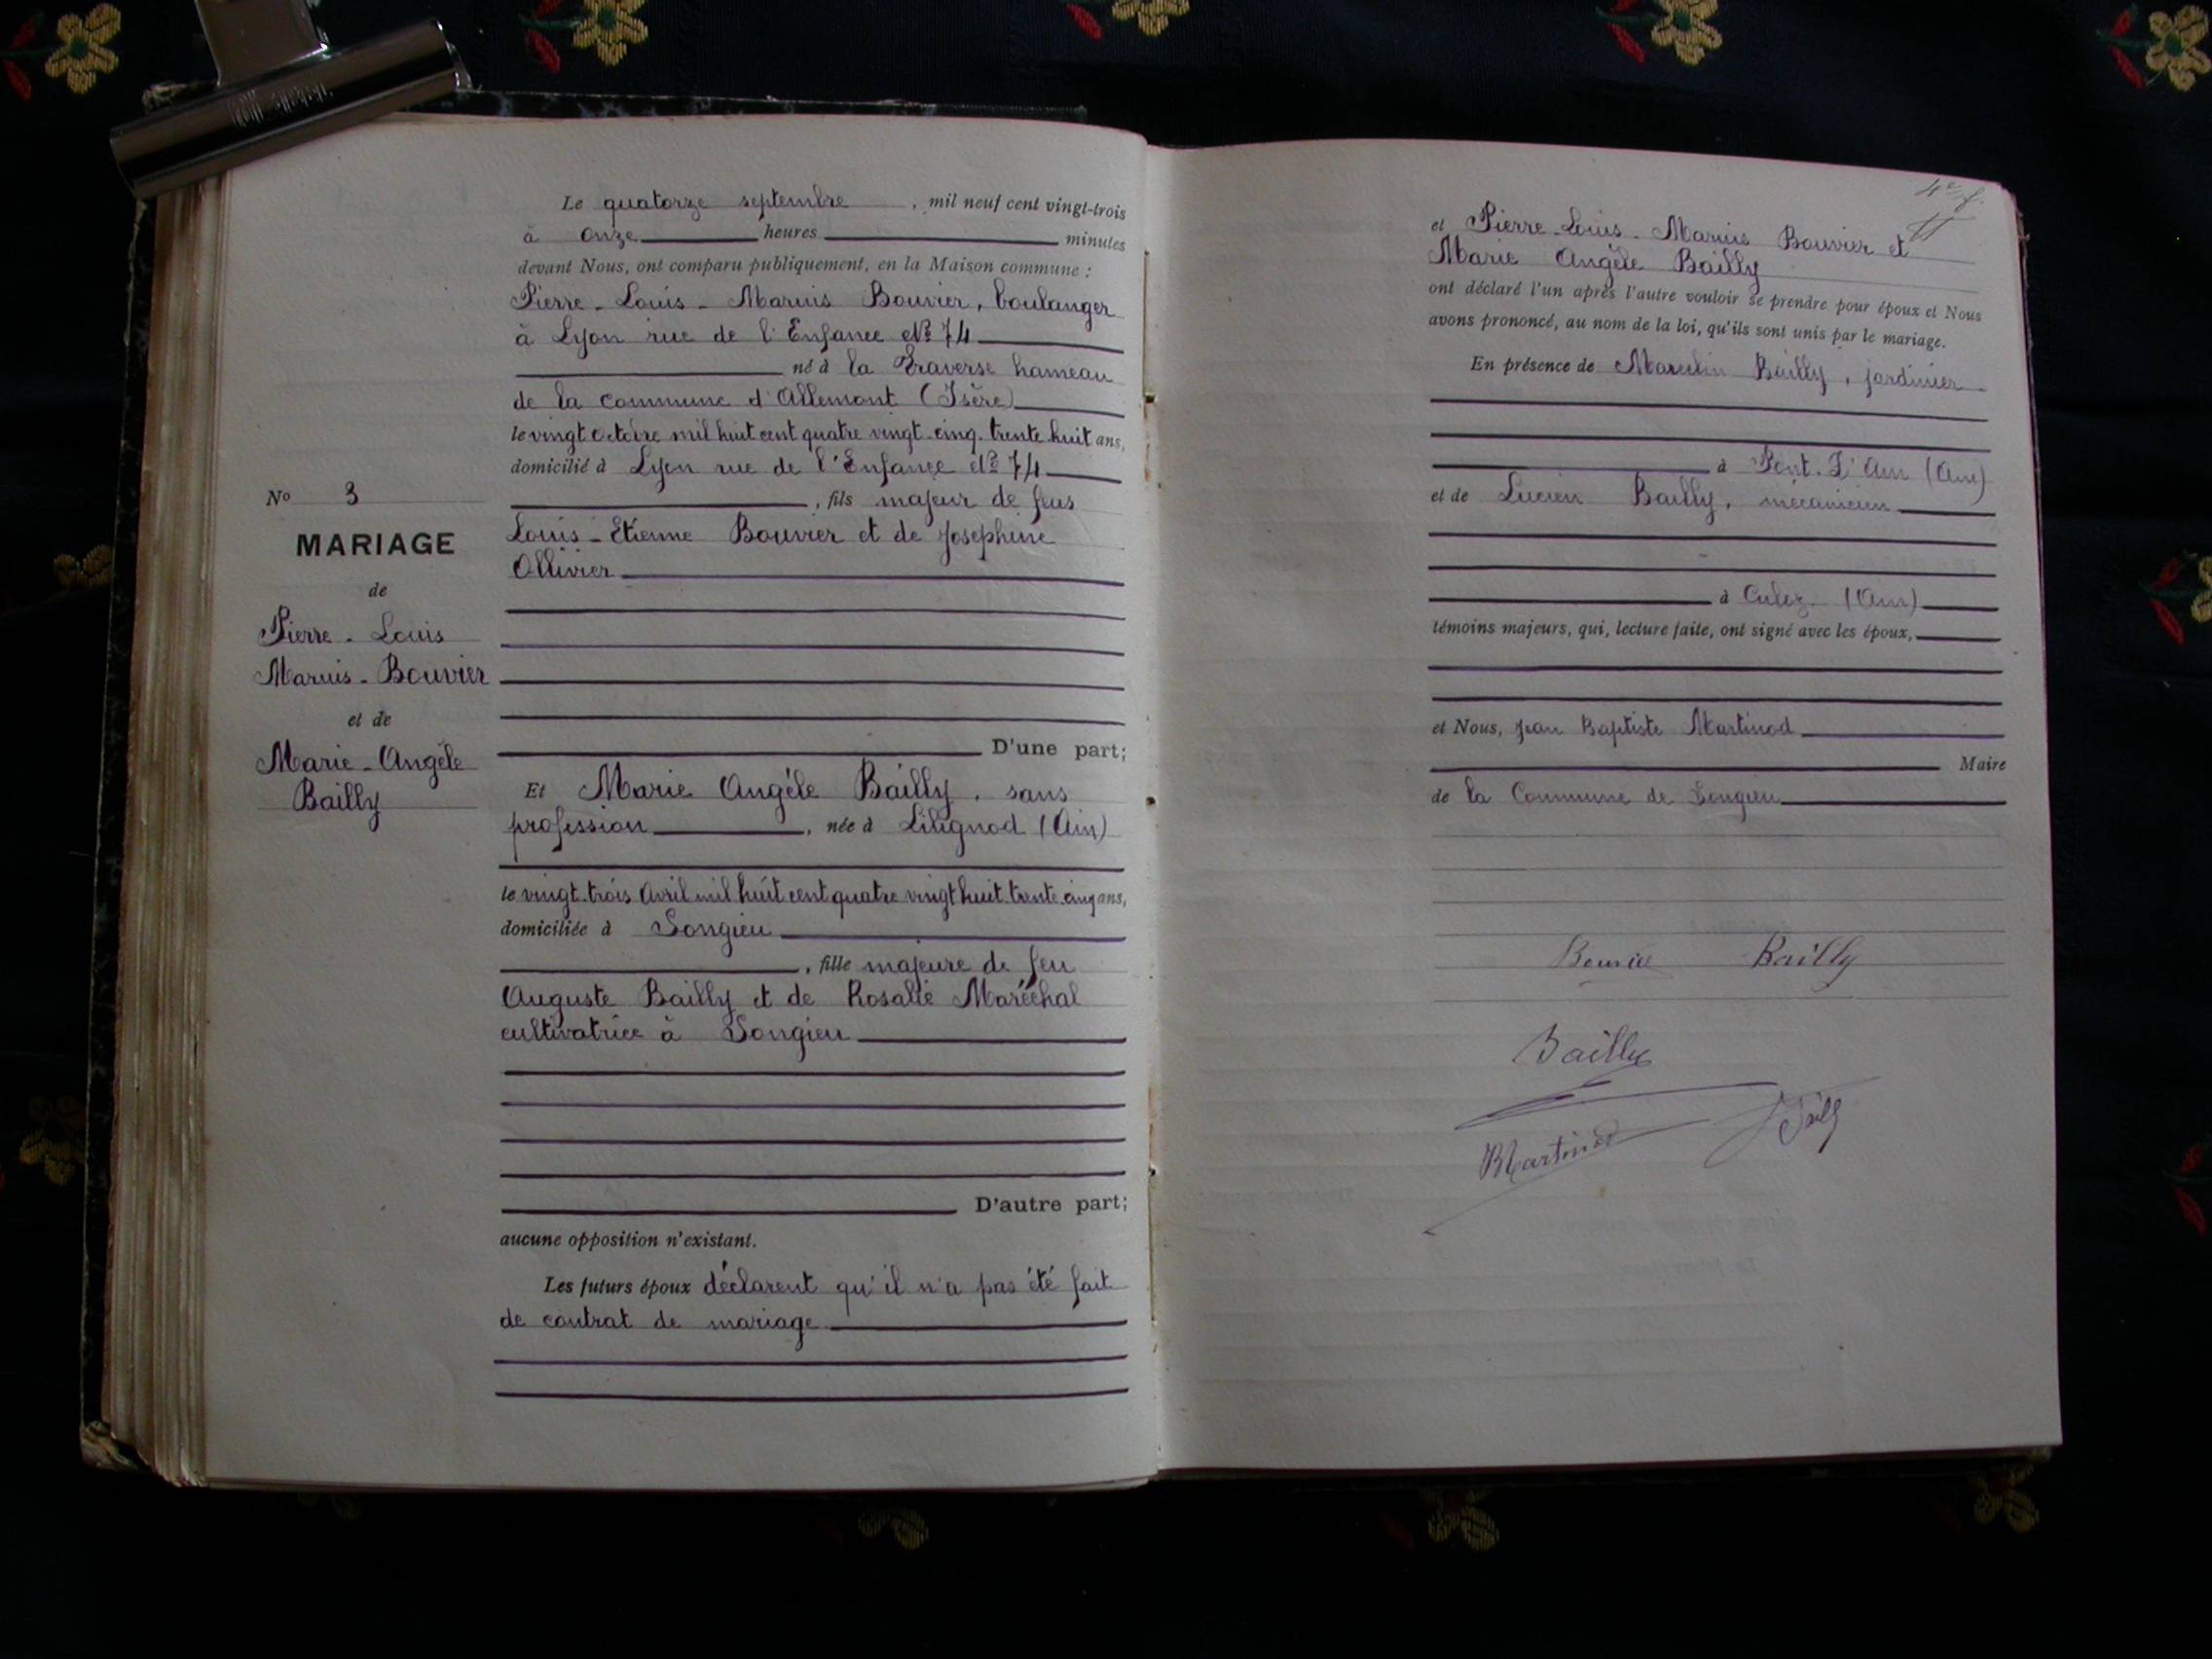 Le quatorze septembre , mil neuf cent vingt-trois
à onze heures minutes
devant Nous, ont comparu publiquement, en la Maison commune :
Pierre - Louis - Marius Bouvier, boulanger
à Lyon rue de l'Enfance No 74
né à la Traverse hameau
de la commune d'Allemont (Isère)
le vingt octobre mil huit cent quatre vingt-cinq. trente huit ans,
domicilié à Lyon rue de l'Enfance No 74
, fils majeur de feus
Louis - Etienne Bouvier et de Josephine
Ollivier
D'une part;
Et Marie Angèle Bailly, sans
profession , née à Lilignod (Ain)
le vingt-trois Avril mil huit cent quatre vingt huit. trente-cinq ans,
domiciliée à Songieu
, fille majeure de feu
Auguste Bailly et de Rosalie Maréchal
cultivatrice à Songieu
D'autre part;
aucune opposition n'existant.
Les futurs époux déclarent qu'il n'a pas été fait
de contrat de mariage
No 3
MARIAGE
de
Pierre - Louis
Marius - Bouvier
et de
Marie - Angèle
Bailly
et Pierre - Louis - Marius Bouvier et
Marie Angèle Bailly
ont déclaré l'un après l'autre vouloir se prendre pour époux et Nous
avons prononcé, au nom de la loi, qu'ils sont unis par le mariage.
En présence de Marcelin Bailly, jardinier
à Pont-d'Ain (Ain)
et de Lucien Bailly, mécanicien
à Culoz (Ain)
témoins majeurs, qui, lecture faite, ont signé avec les époux,
et Nous, Jean Baptiste Martinod
Maire
de la Commune de Songieu
Bouvier Bailly
Bailly
Martinod